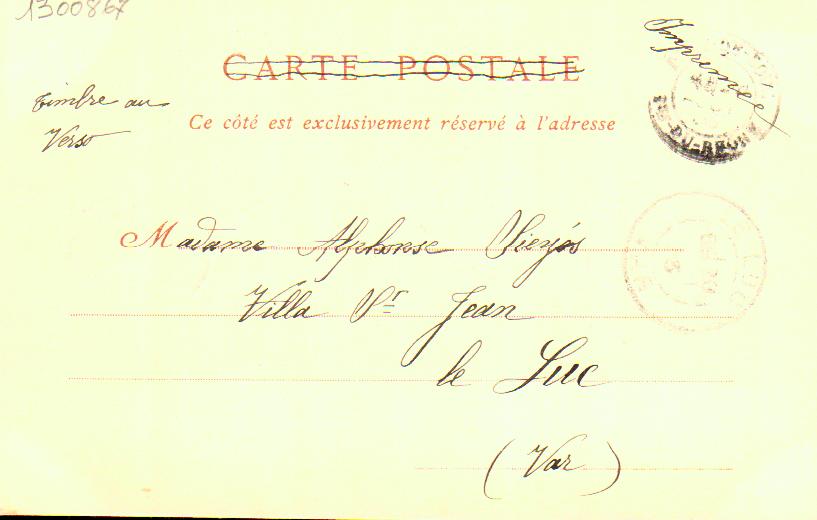 1300867
CARTE POSTALE
Imprimée
timbre au
Verso
Ce côté est exclusivement réservé à l'adresse
DU-RHONE
Madame Alphonse
Villa St Jean
le Luc
(Var)